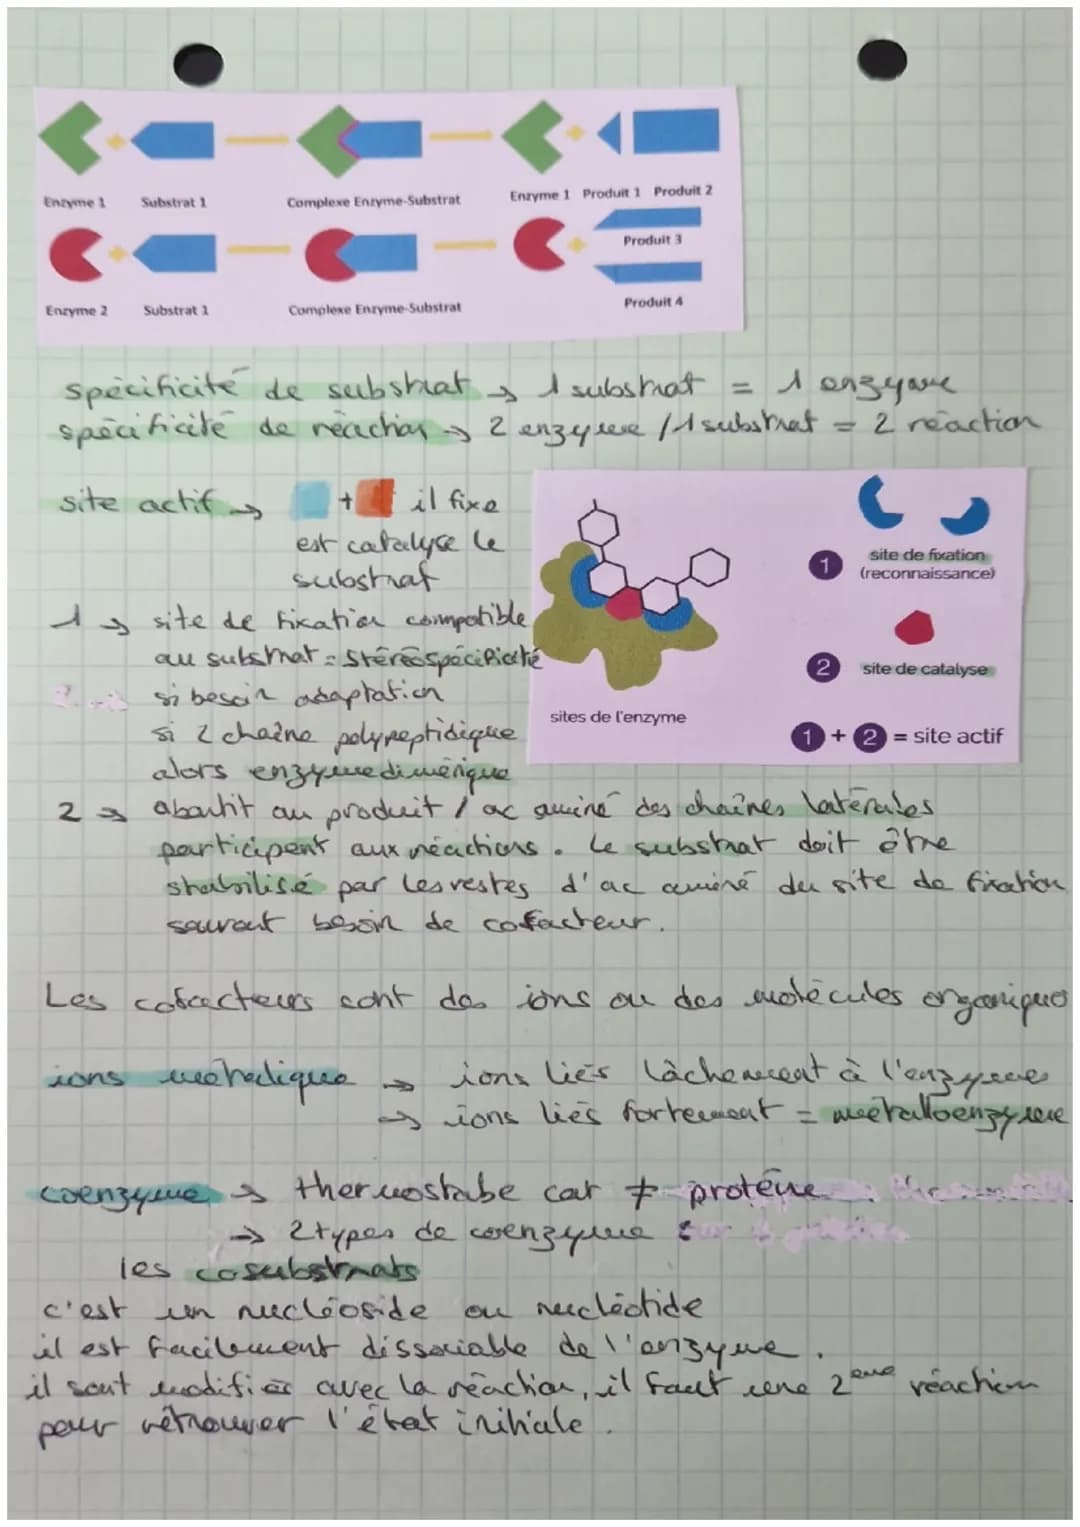 Enzyme 1 Substrat 1 Complexe Enzyme-Substrat Enzyme 1 Produit 1 Produit 2
Produit 3
Enzyme 2 Substrat 1 Complexe Enzyme-Substrat Produit 4
spécificité de substrat → 1 substrat = 1 enzyme
spécificité de réaction → 2 enzyme / 1 substrat = 2 réaction
site actif → + il fixe
est catalyse le
substrat
1 → site de fixation compatible
au substrat = Stéréospécificité
si besoin adaptation
si 2 chaîne polypeptidique
alors enzyme dimérique
1 site de fixation
(reconnaissance)
2 site de catalyse
sites de l'enzyme
1 + 2 = site actif
2 → aboutit au produit / ac aminé des chaînes latérales
participent aux réactions. Le substrat doit être
stabilisé par les restes d'ac aminé du site de fixation
souvent besoin de cofacteur.
Les cofacteurs sont des ions ou des molécules organiques
ions métalique → ions liés lâchement à l'enzymes
→ ions liés fortement = métalloenzyme
coenzyme → thermostabe car ≠ protéine
→ 2 types de coenzyme :
les cosubstrats
c'est un nucléoside ou nucléotide
il est facilement dissociable de l'enzyme.
il sont modifiés avec la réaction, il faut une 2eme réaction
pour rétrouver l'état initiale.